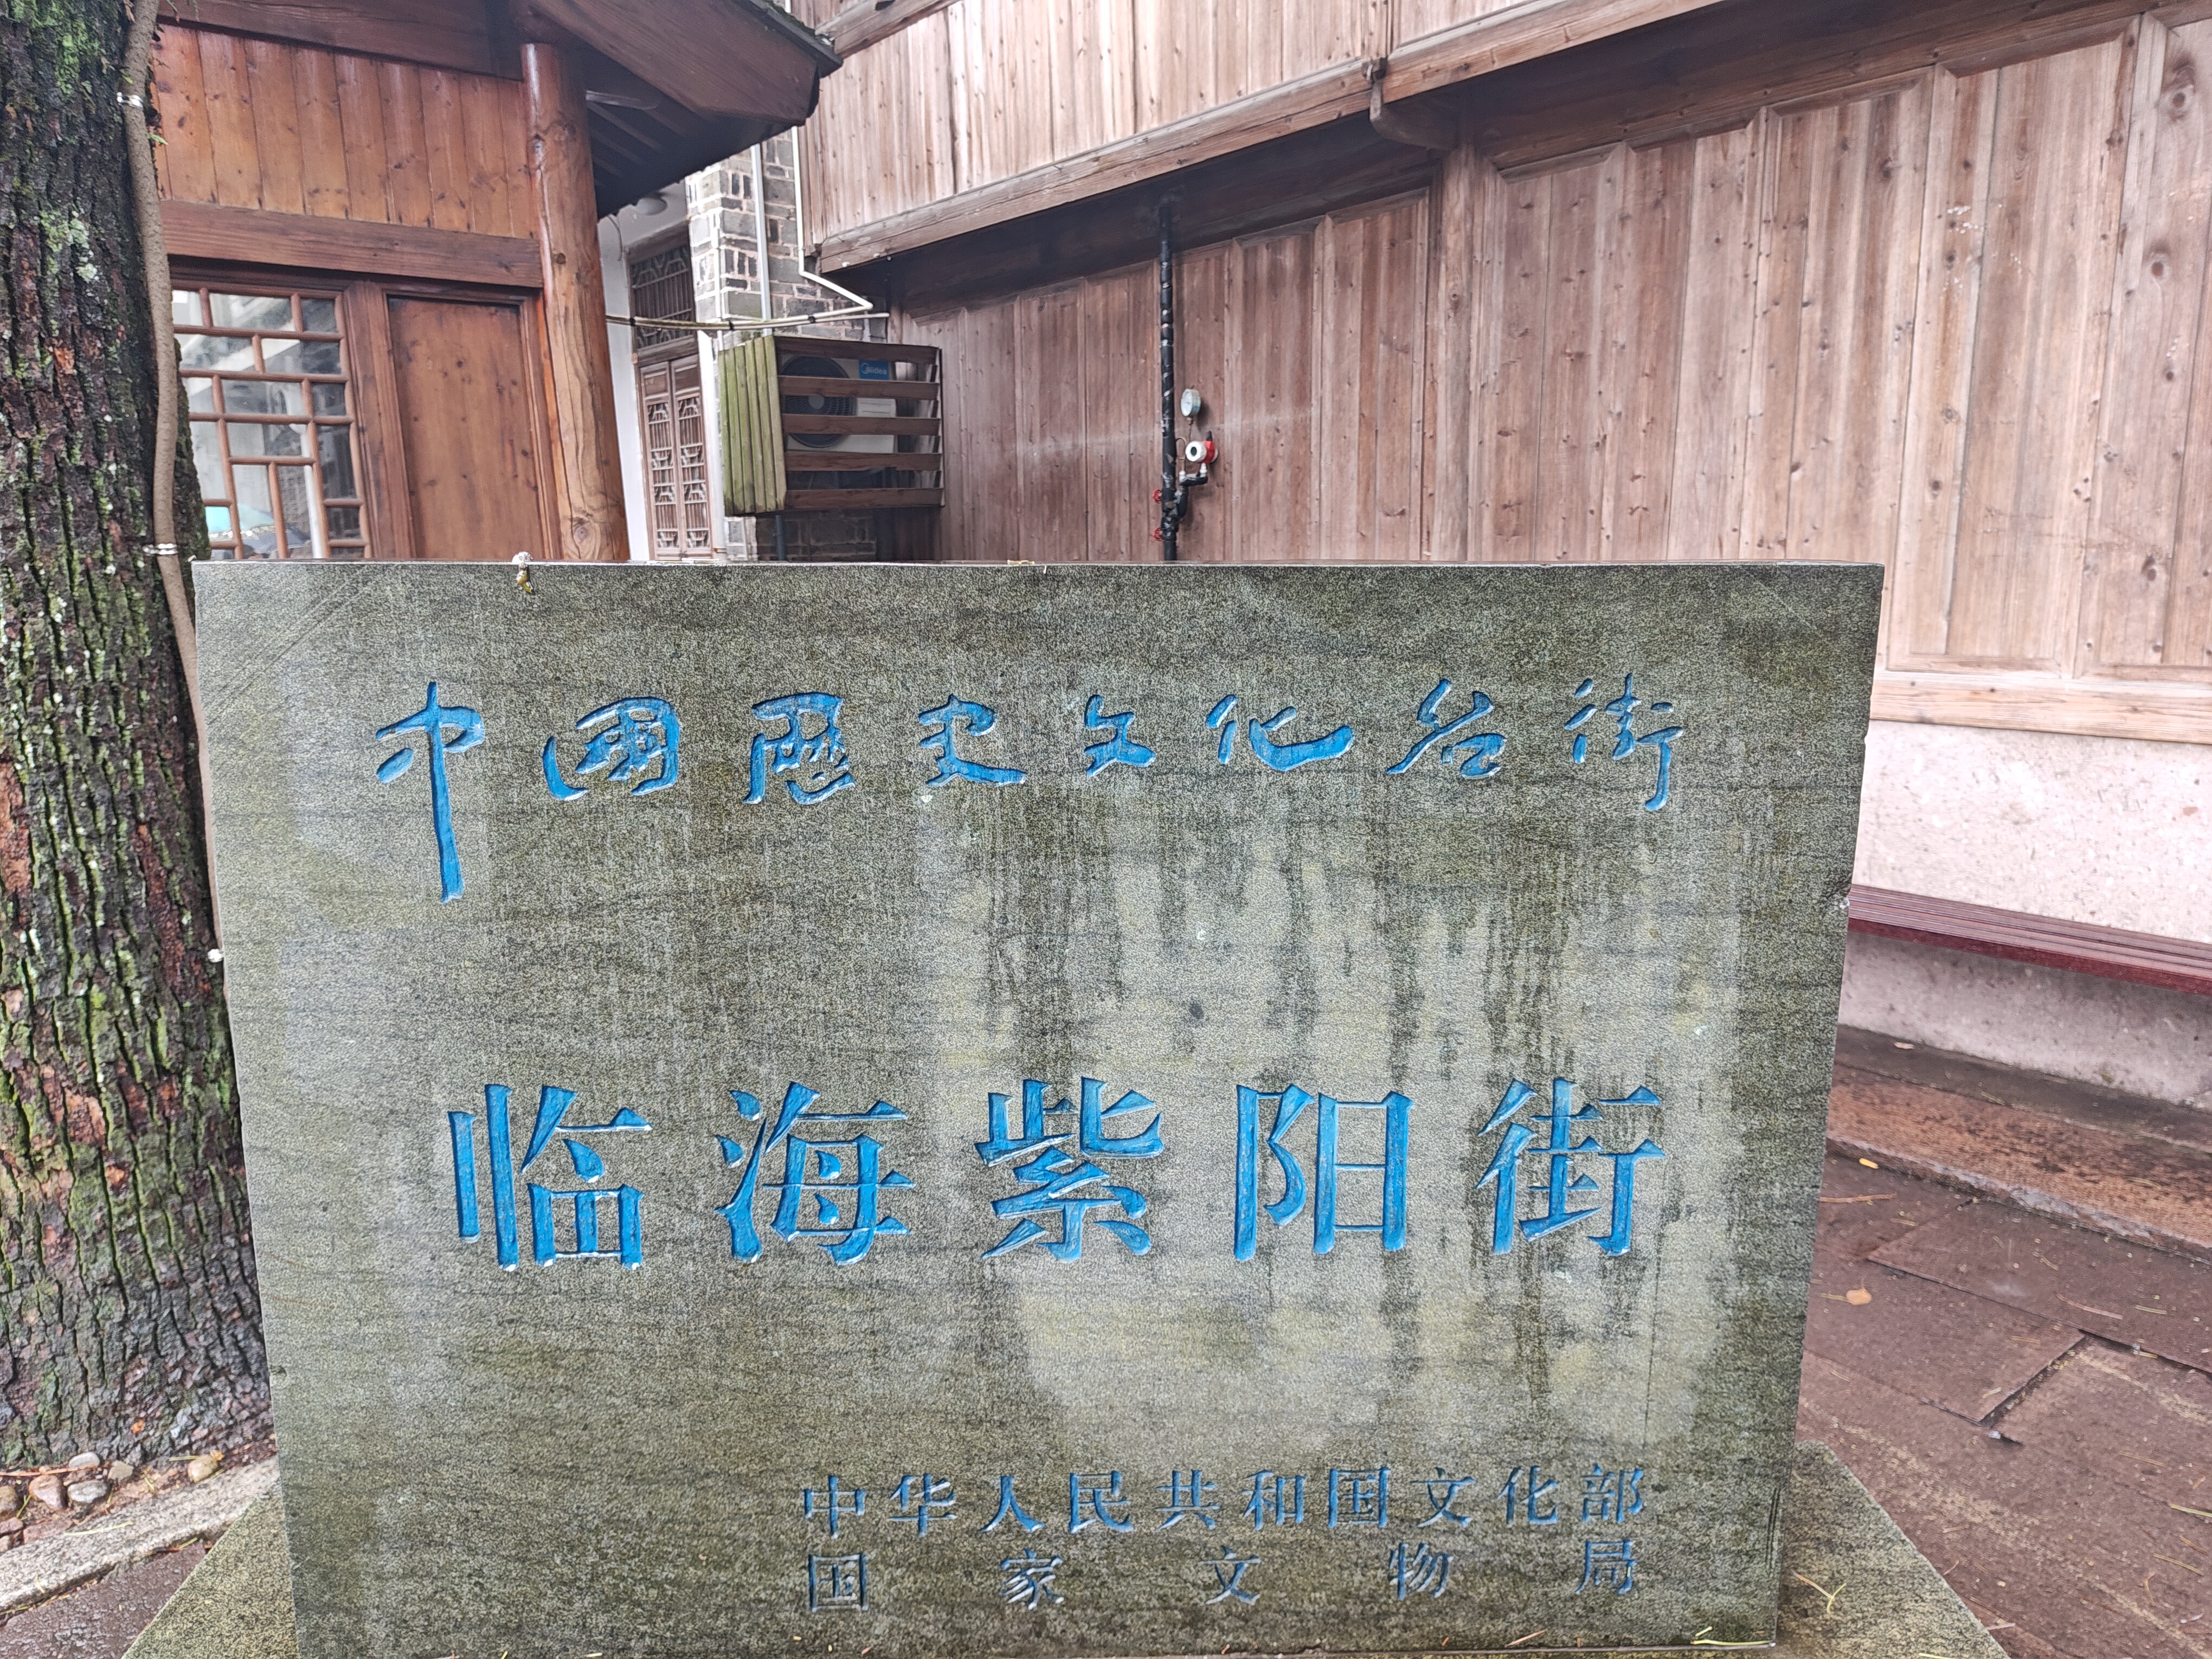 Midea
中國歷史文化名街
临海紫阳街
中华人民共和国文化部
国家文物局